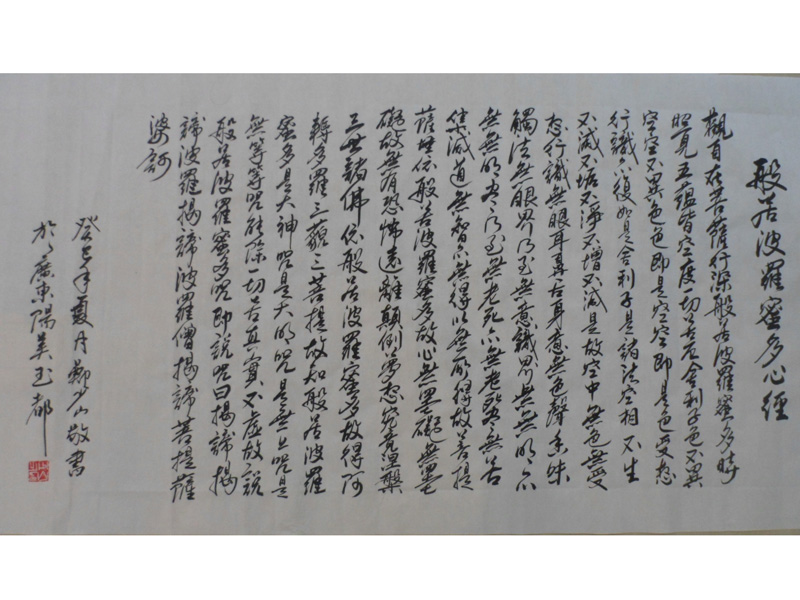 般若波羅蜜多心經
觀自在菩薩行深般若波羅蜜多時
照見五蘊皆空度一切苦厄舍利子色不異
空空不異色色即是空空即是色受想
行識亦復如是舍利子是諸法空相不生
不滅不垢不淨不增不減是故空中無色無受
想行識無眼耳鼻舌身意無色聲香味
觸法無眼界乃至無意識界無無明亦
無無明盡乃至無老死亦無老死盡無苦
集滅道無智亦無得以無所得故菩提
薩埵依般若波羅蜜多故心無罣礙無罣
礙故無有恐怖遠離顛倒夢想究竟涅槃
三世諸佛依般若波羅蜜多故得阿
耨多羅三藐三菩提故知般若波羅
蜜多是大神咒是大明咒是無上咒是
無等等咒能除一切苦真實不虛故說
般若波羅蜜多咒即說咒曰揭諦揭
諦波羅揭諦波羅僧揭諦菩提薩
婆訶
癸巳年夏月鄭少山敬書
於廣東陽美玉都